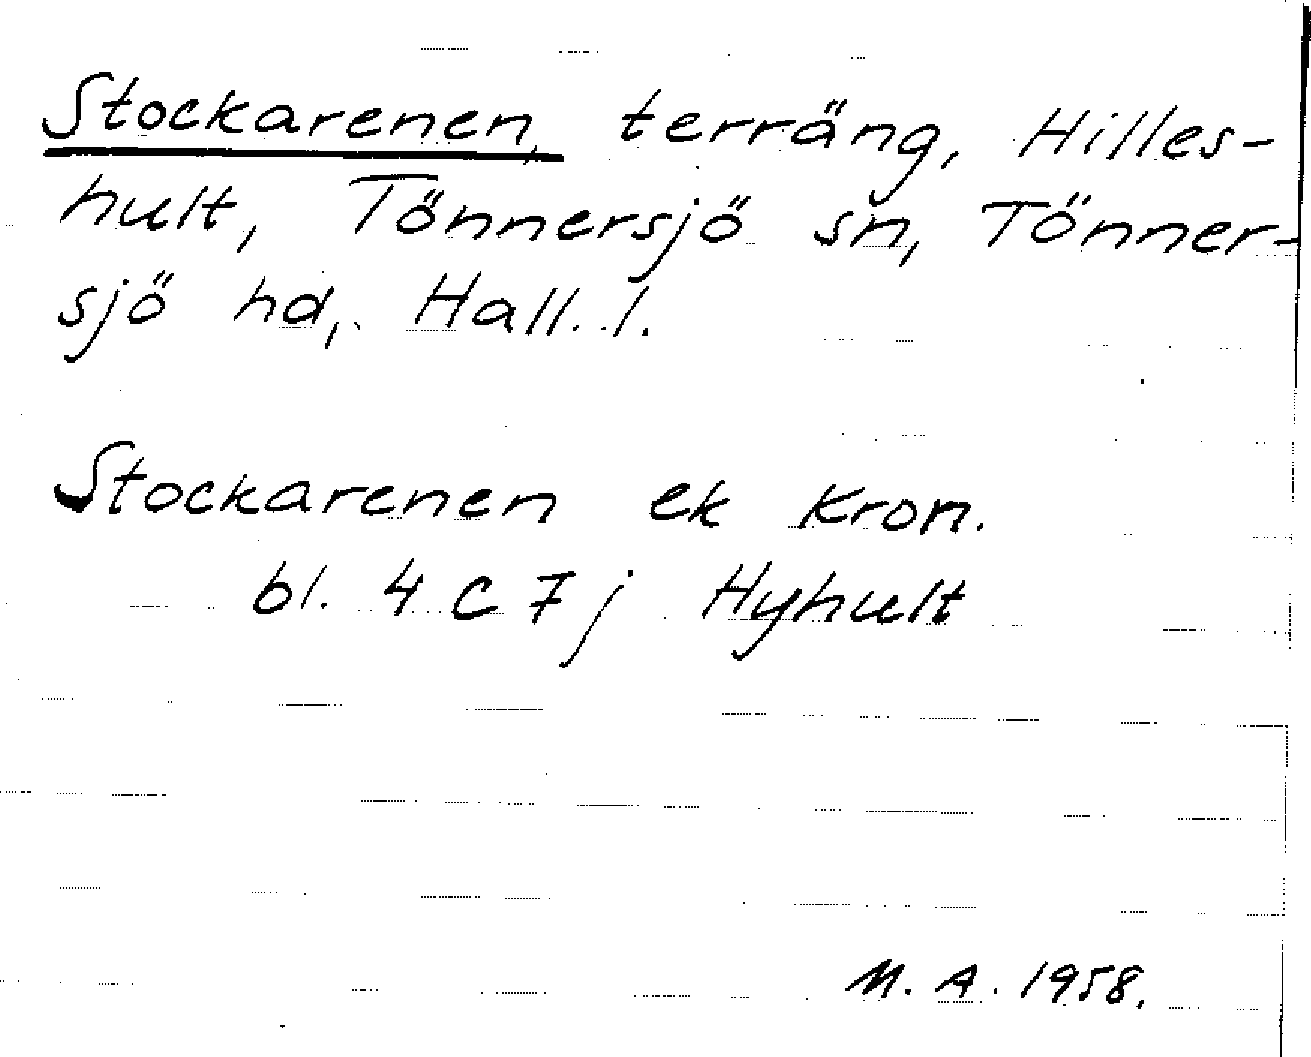 Stockarenen, terräng, Hilles-
hult, Tönnersjö sn, Tönner-
sjö hd, Hall. l.
Stockarenen ek Kron.
bl. 4 C 7 j Hyhult
M. A. 1958.